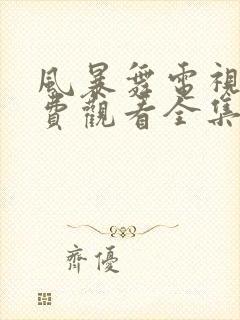 風暴舞電視
費觀看全集
齊優